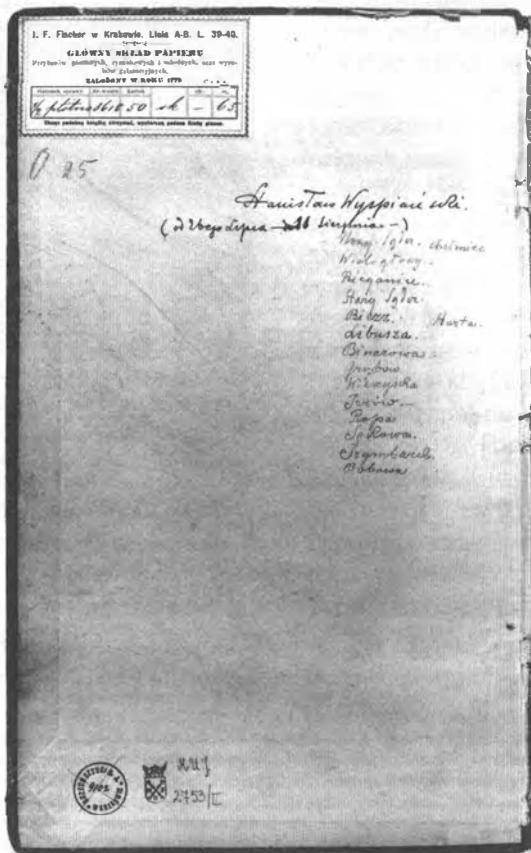 I. F. Fischer w Krakowie, Linia A-B. L. 39-40.
GŁÓWNY SKŁAD PAPIERU
Przyborów piśmiennych, rysunkowych i szkolnych, oraz wyro-
bów galanteryjnych.
ZAŁOŻONY W ROKU 1779
½ płótna 3610 50 sk — 65
Chcąc podobną książkę otrzymać, wystarczy podanie
25
Stanisław Wyspiański.
(od 26go Lipca – 16 Sierpnia –)
Nowy Sącz. Chełmiec
Wielogłowy.
Biegonice.
Stary Sącz.
Biecz. Harta.
Libusza.
Binarowa
Grybów
Wilczyska
Jeżów –
Ropa
Sękowa.
Szymbark.
Bobowa
MUJ
2753/II